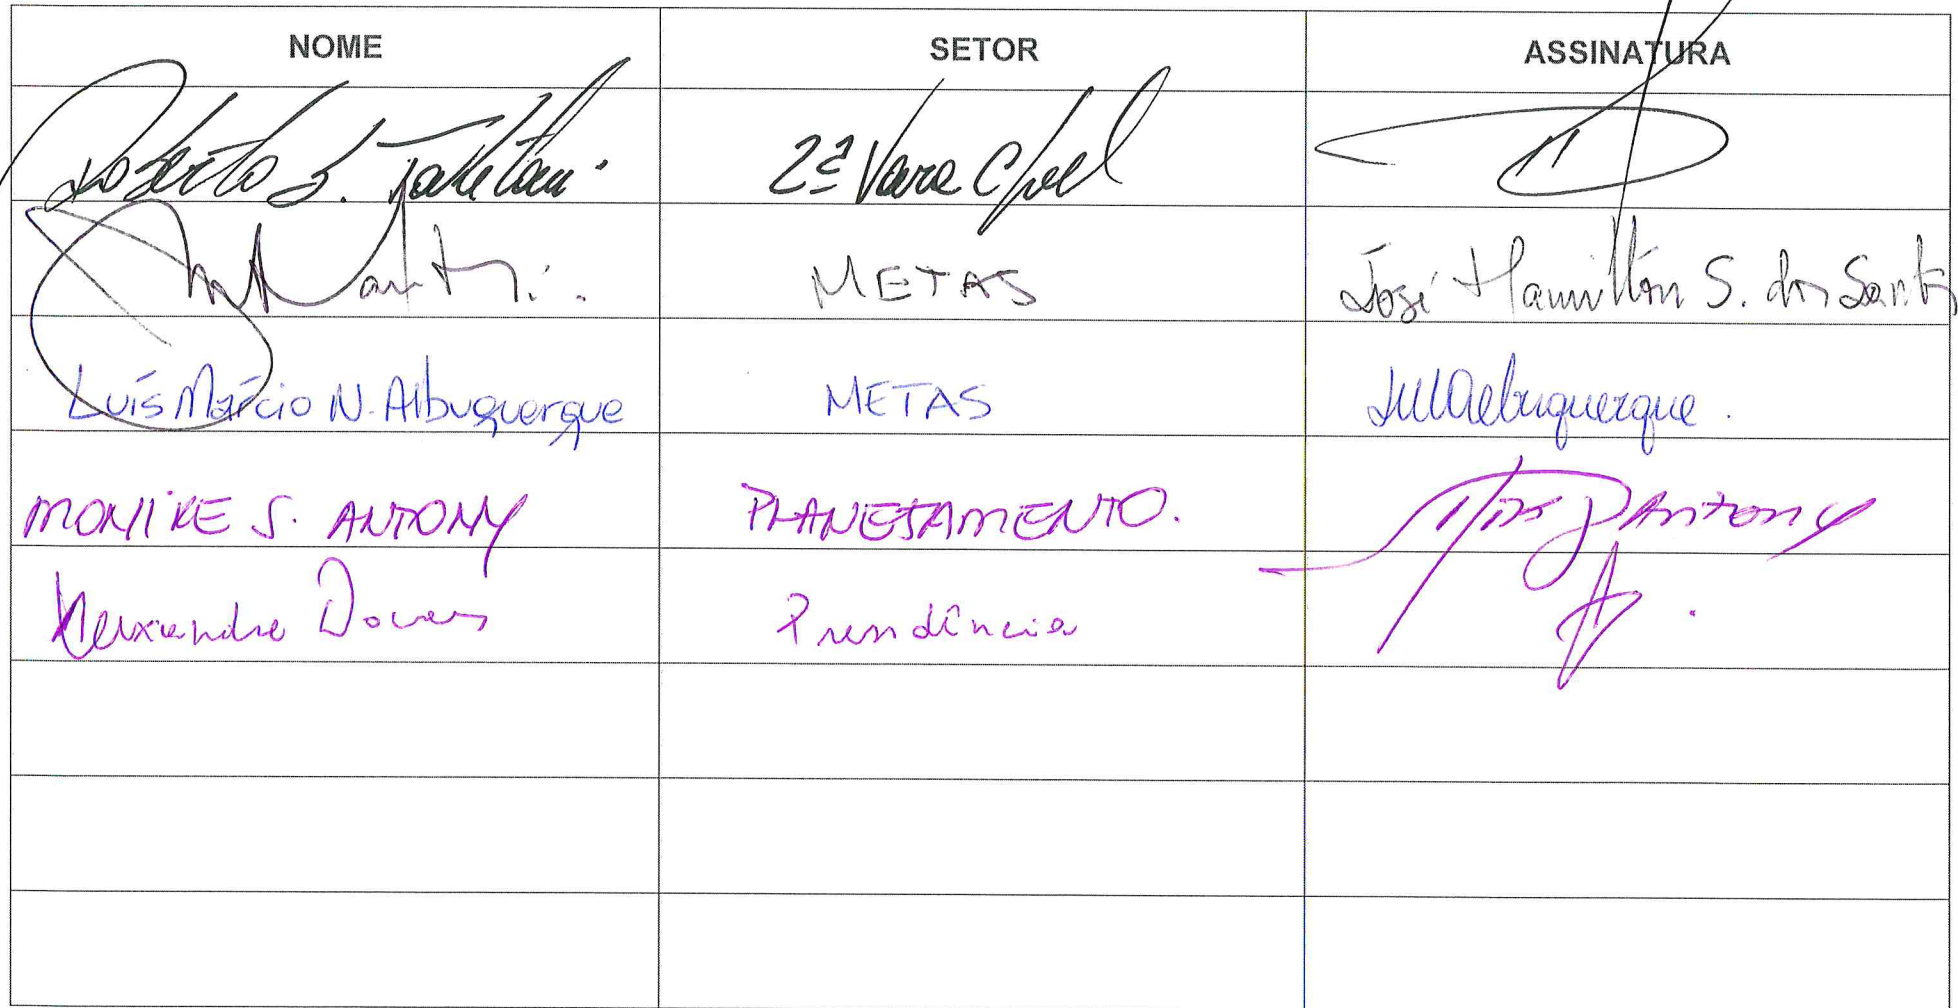 NOME SETOR ASSINATURA
Roberto S. Taketomi 2ª Vara Cível
METAS José Hamilton S. dos Santos
Luís Márcio N. Albuquerque METAS Albuquerque.
MONIKE S. ANTONY PLANEJAMENTO. Antony
Alexandre Presidência